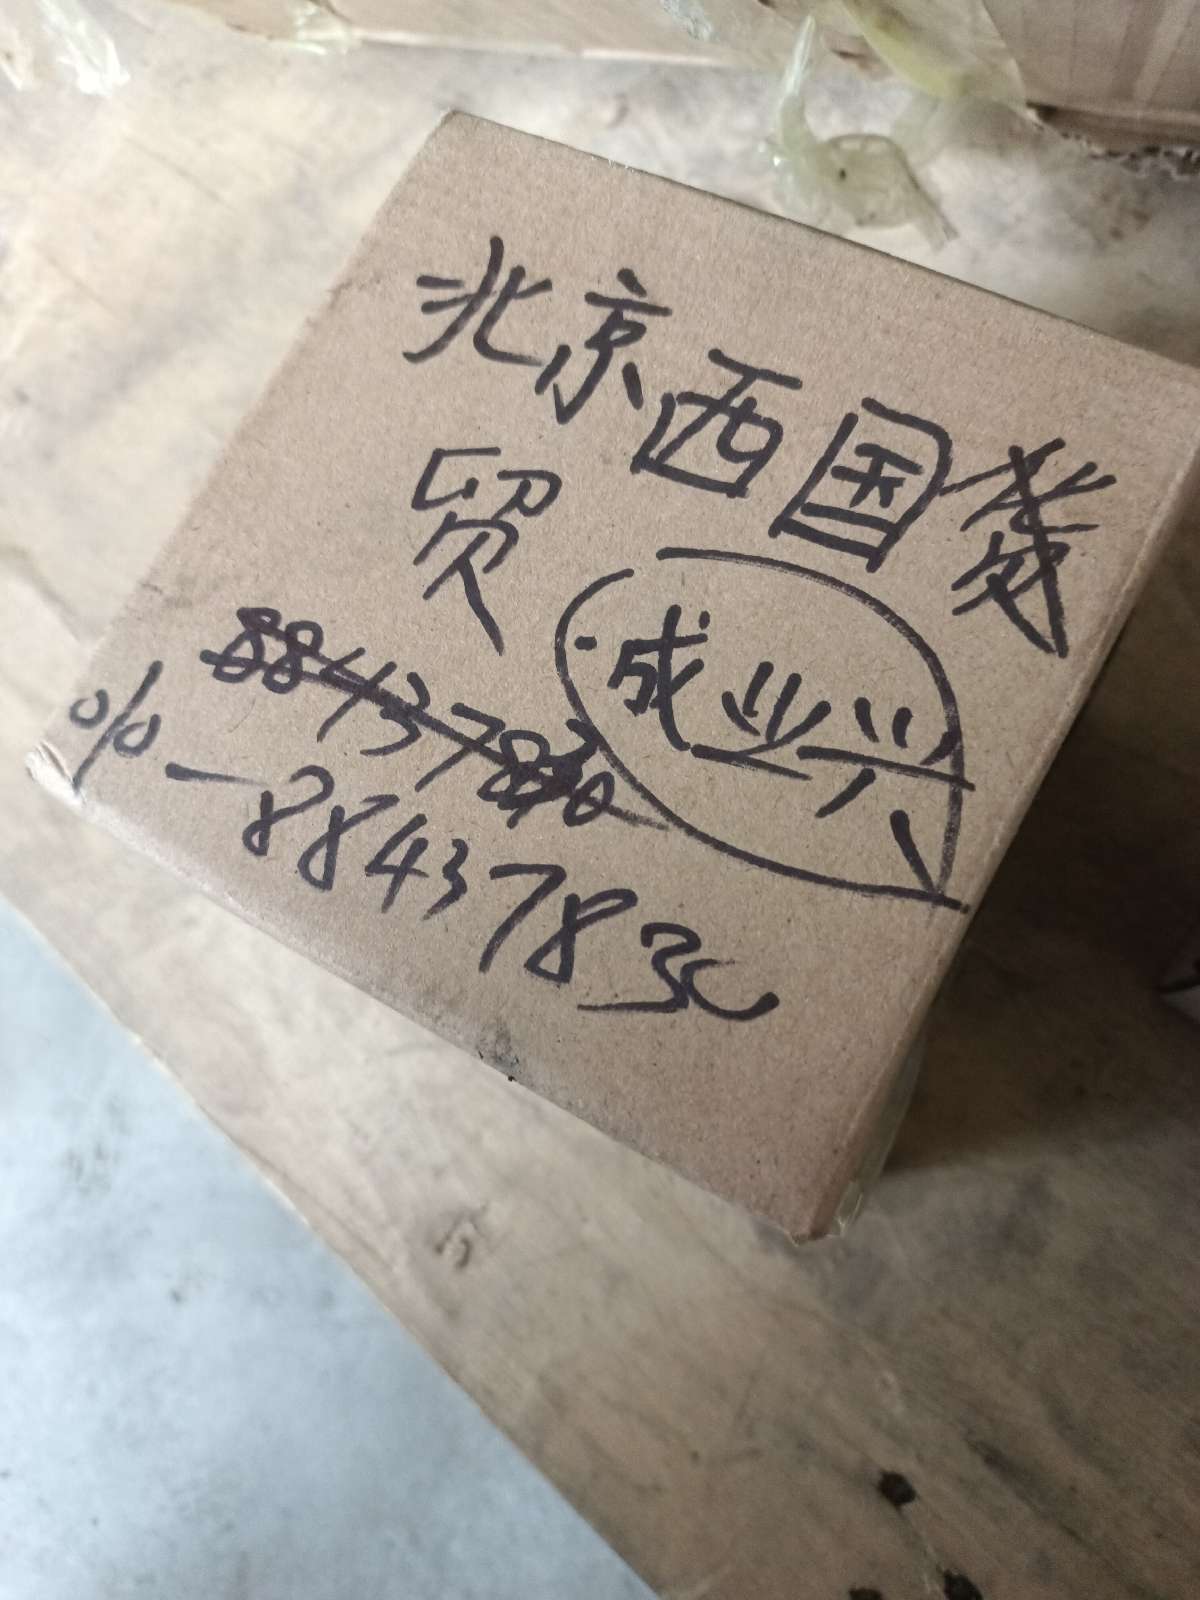 北京西国
贸
成业兴
88437830
010-88437830